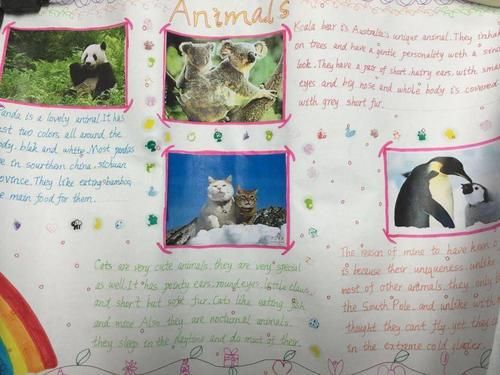 Animals
Koala bear is Australia's unique animal. They inhab
on trees and have a gentle personality with a
look. They have a pair of short, hairy ears, with small
eyes and big nose and whole body is covered
with grey short fur.
anda is a lovely animal. It has
st two colors all around the
dy. blak and white. Most pandas
e in sourthern china, sichuan
ovince. They like eating bamboo,
e main food for them.
Cats are very cute animals. they are very special
as well. It has pointy ears, round eyes, little claws
and short but soft fur. Cats like eating fish
and mice. Also they are nocturnal animals.
they sleep in the daytime and do most of their
The reason of mine to have
is because their uniqueness. unlike
most of other animals. they only
the South Pole. and unlike
thought they can't fly. yet they
in the extreme cold